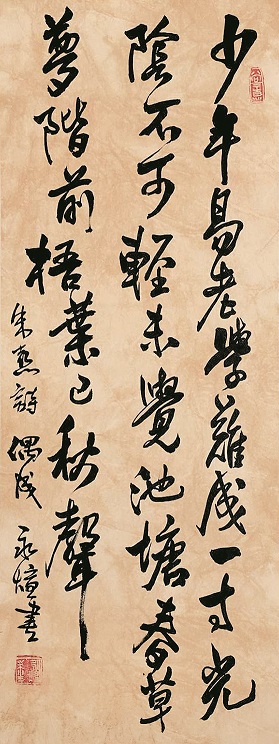 少年易老學難成一寸光
陰不可輕未覺池塘春草
夢階前梧葉已秋聲
朱熹詩 偶成 永燈書